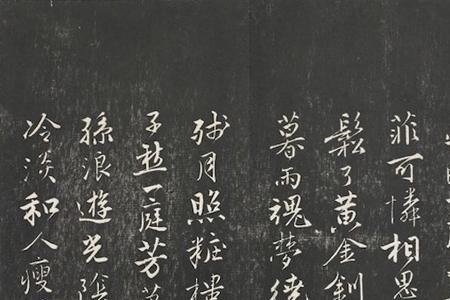 菲可憐相思
鬆了黃金釧
暮雨魂夢繞
殘月照粧樓
子愁一庭芳
孫浪遊光陰
冷淡和人瘦